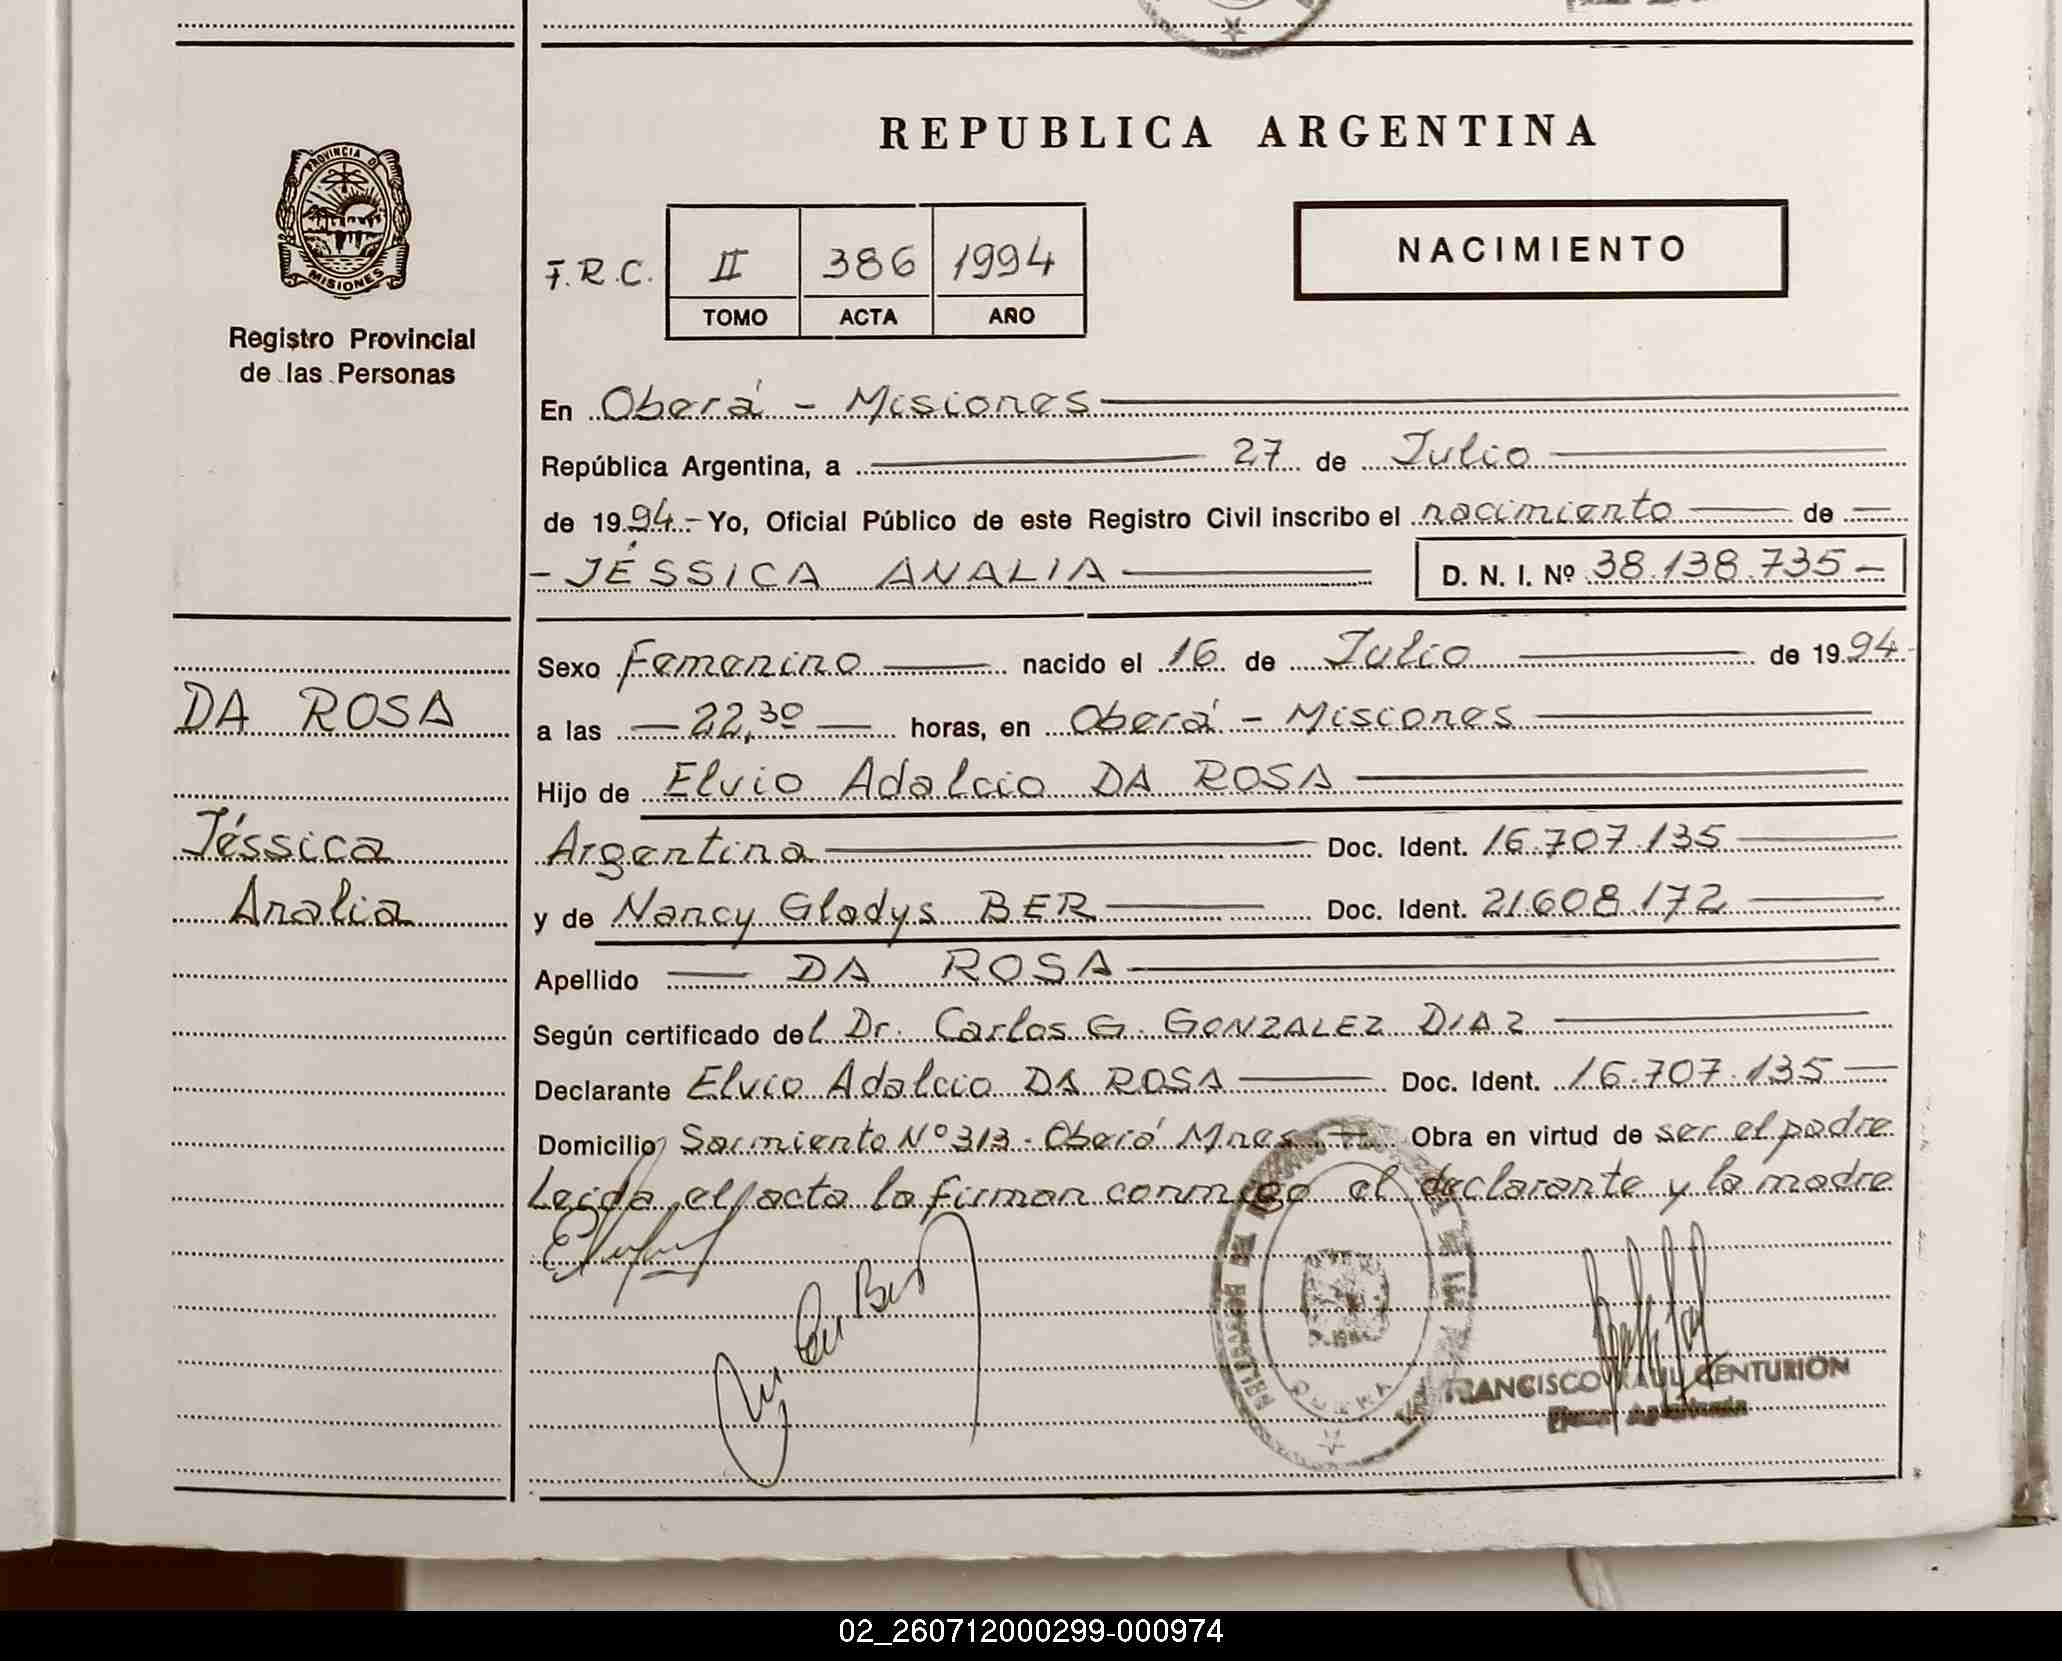 REPUBLICA ARGENTINA
PROVINCIA DE
MISIONES
Registro Provincial
de las Personas
F.R.C. II 386 1994
TOMO ACTA AÑO
NACIMIENTO
En Oberá - Misiones
República Argentina, a 27 de Julio
de 1994.- Yo, Oficial Público de este Registro Civil inscribo el nacimiento de
- JÉSSICA ANALIA D. N. I. Nº 38.138.735 -
DA ROSA
Jéssica
Analia
Sexo Femenino nacido el 16 de Julio de 1994
a las 22,30 horas, en Oberá - Misiones
Hijo de Elvio Adalcio DA ROSA
Argentina Doc. Ident. 16.707.135
y de Nancy Gladys BER Doc. Ident. 21.608.172
Apellido DA ROSA
Según certificado del Dr. Carlos G. GONZALEZ DIAZ
Declarante Elvio Adalcio DA ROSA Doc. Ident. 16.707.135
Domicilio Sarmiento Nº 313 - Oberá Mnes Obra en virtud de ser el padre
Leida el acta la firman conmigo el declarante y la madre
FRANCISCO RAUL CENTURION
02_260712000299-000974